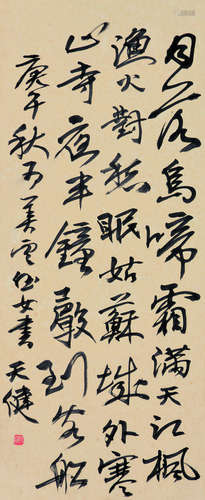 月落烏啼霜滿天江楓
漁火對愁眠姑蘇城外寒
山寺夜半鐘聲到客船
庚午秋为美雲侄女書天健